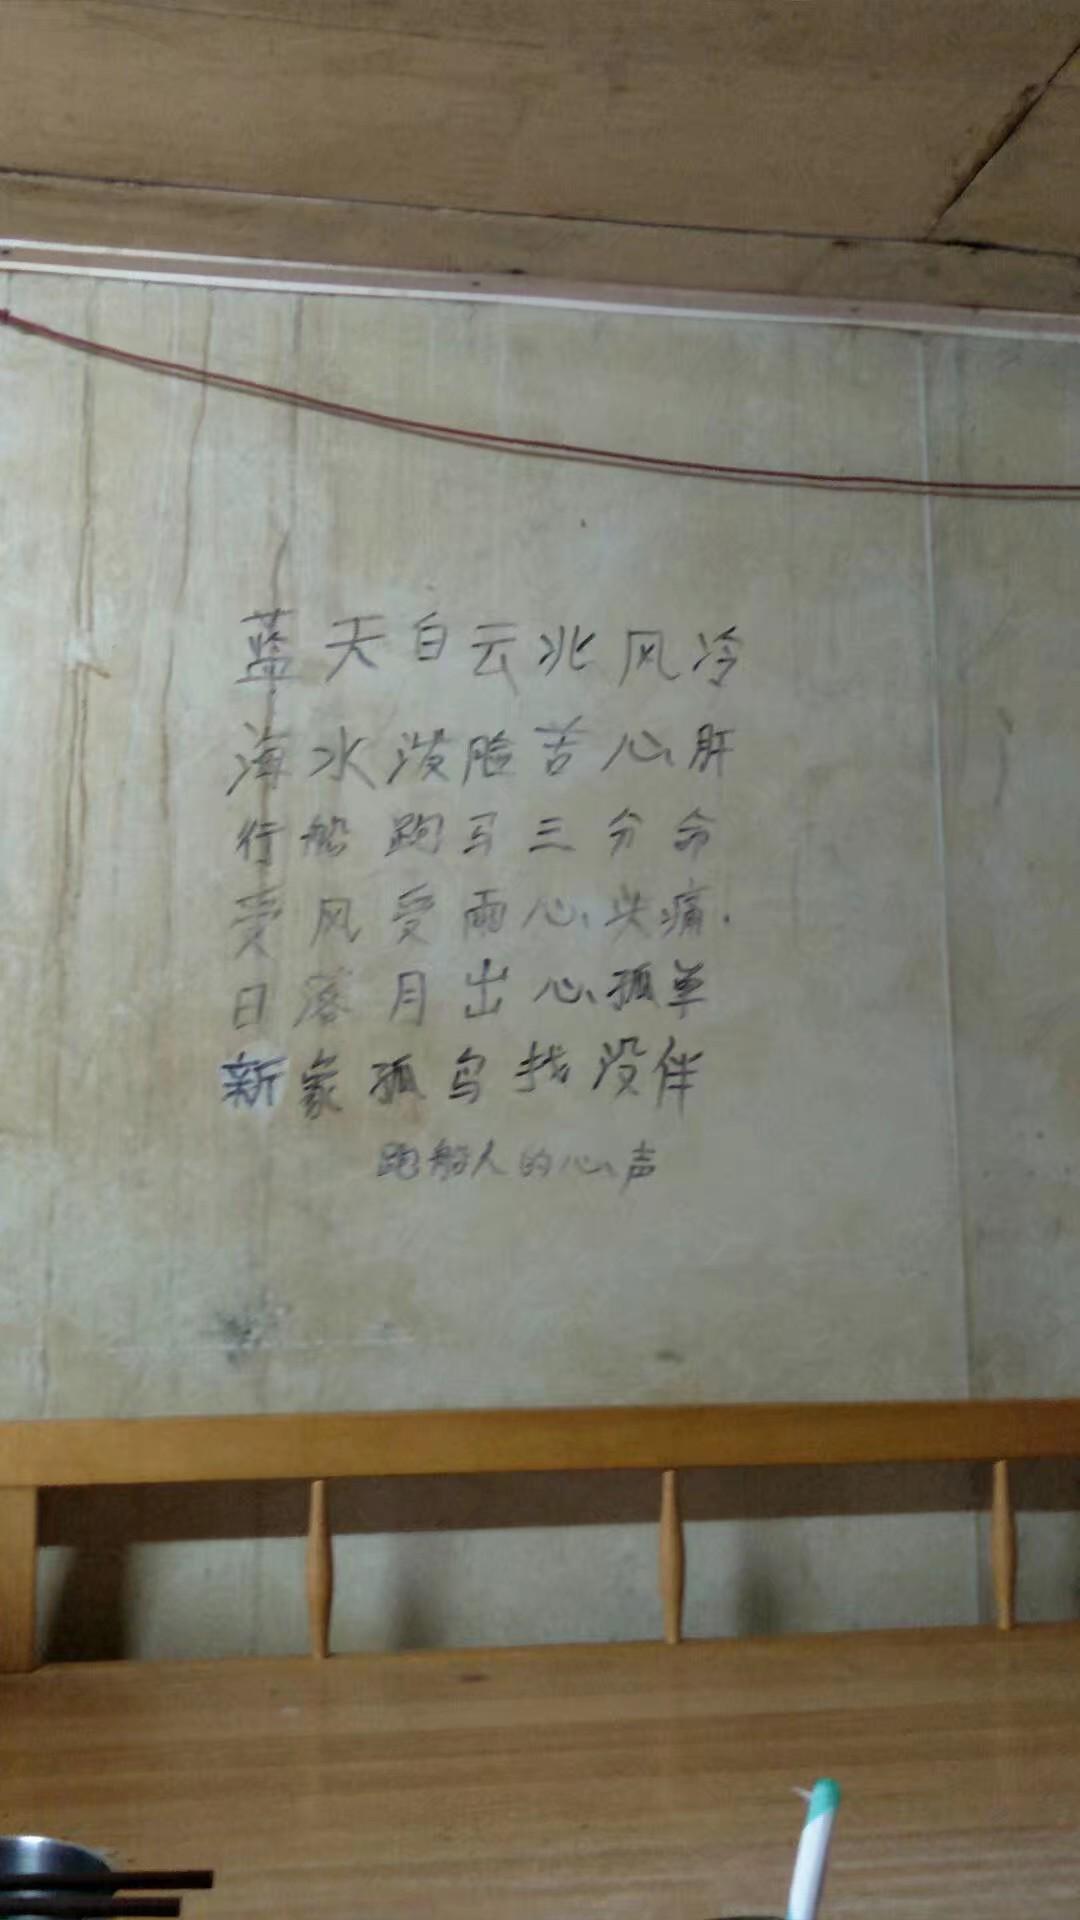 蓝天白云北风冷
海水泼脸苦心肝
行船跑马三分命
受风受雨心头痛.
日落月出心孤单
新象孤鸟找没伴
跑船人的心声